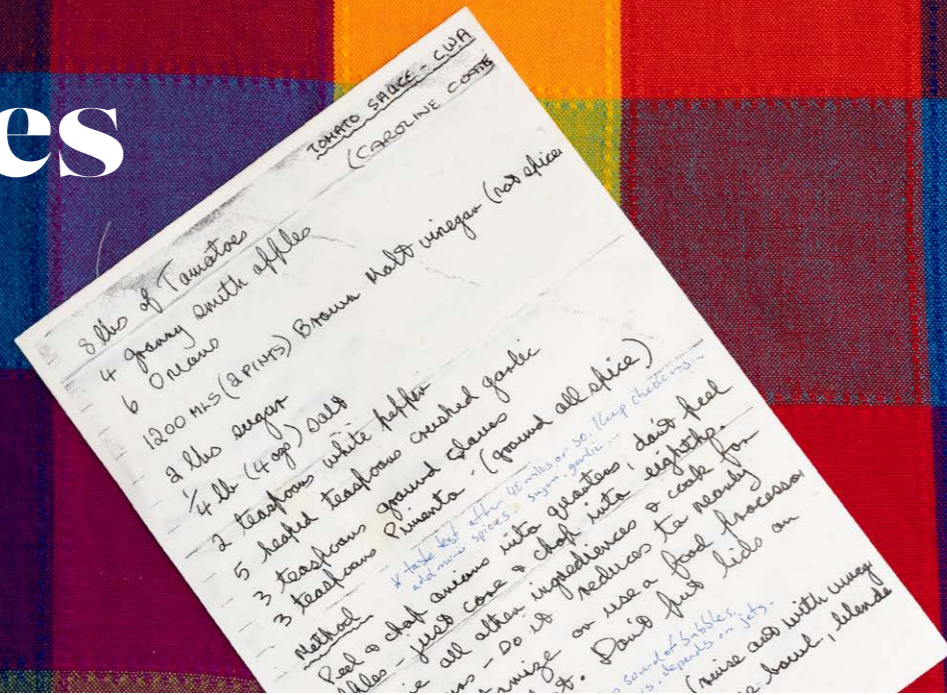 es
TOMATO SAUCE - CWA
(CAROLINE
8 lbs of Tomatoes
4 granny smith apples
6 Onions
1200 MLS (2 PINTS) Brown Malt vinegar (not spice
2 lbs sugar
1/4 lb (4 ozs) salt
2 teaspoons white pepper
5 heaped teaspoons crushed garlic
3 teaspoons ground cloves
3 teaspoons Pimento - (ground all spice)
* taste test after 40 mins or so. Keep checking -
add more spices. sugar garlic ...
Method
Peel & chop onions into quarters, don't peel
- just core & chop into eighths.
all other ingredients & cook for
- so it reduces to nearly
or use a food processor
Don't put lids on
sound of bubbles.
depends on jets.
(rinse out with vineg
bowl, blende